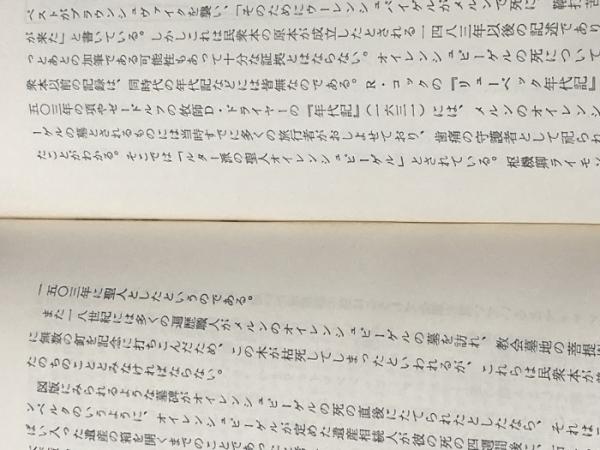 ペストがブラウンシュヴァイクを襲い、「そのためにウーレンシュペイゲルがメルンで死に、鞭打苦
が来た」と書いている。しかしこれは民衆本の原本が成立したとされる一四八三年以後の記述であり
っとあとの加筆である可能性もあって十分な証拠とはならない。オイレンシュピーゲルの死について
衆本以前の記録は、同時代の年代記などには皆無なのである。R・コックの『リューベック年代記』
五〇三年の項やゼードルフの牧師D・ドライヤーの『年代記』(一六三一)には、メルンのオイレン
ーゲルの墓とされるものには当時すでに多くの旅行者がおしよせており、歯痛の守護者として祀られ
たことがわかる。そこでは「ルター派の聖人オイレンシュピーゲル」とされている。枢機卿ライモン
一五〇三年に聖人としたというのである。
また一八世紀には多くの遍歴職人がメルンのオイレンシュピーゲルの墓を訪れ、教会墓地の菩提樹
に無数の釘を記念に打ちこんだため、この木が枯死してしまったといわれるが、これらは民衆本が
たのちのこととみなければならない。
図版にみられるような墓碑がオイレンシュピーゲルの死の直後にたてられたとしたなら、それは
ンベルクのいうように、オイレンシュピーゲルが定めた遺産相続人が彼の死の四週間後に、
ぱい入った遺産の箱を開くまでのことであった